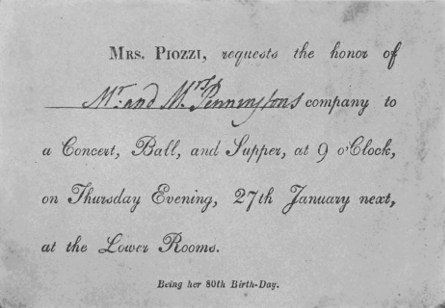 MRS. PIOZZI, requests the honor of
Mr. and Mrs. Pennington's company to
a Concert, Ball, and Supper, at 9 o'Clock,
on Thursday Evening, 27th January next,
at the Lower Rooms.
Being her 80th Birth-Day.